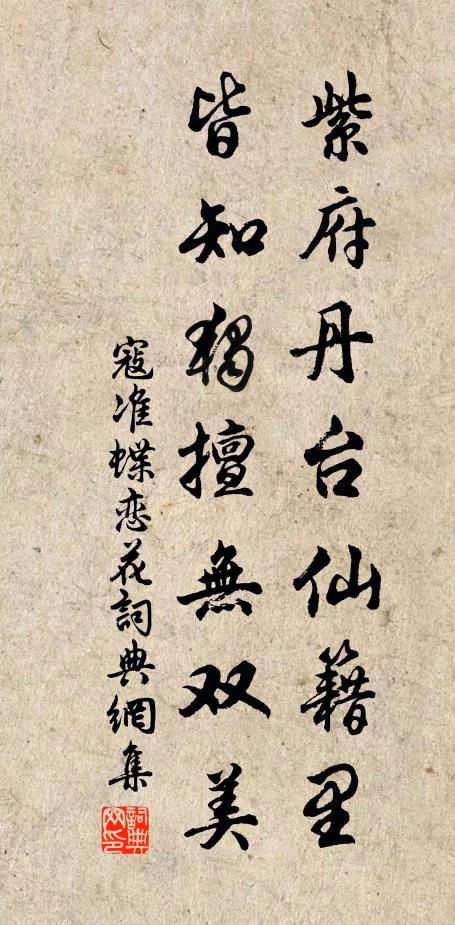 紫府丹台仙籍里
皆知独擅無双美
寇准蝶恋花詞典網集
詞典网印